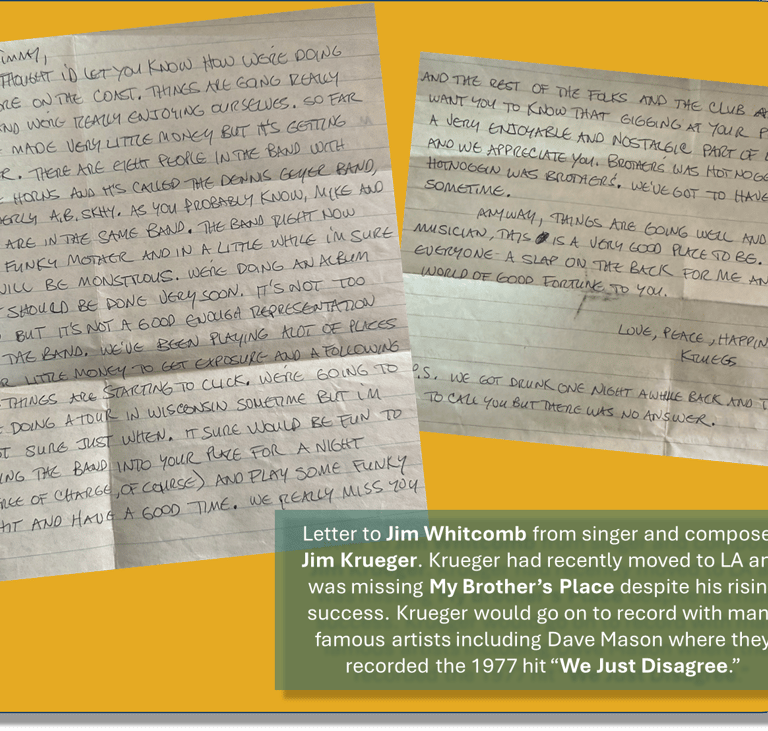 IMMY,
THOUGHT I'D LET YOU KNOW HOW WE'RE DOING
RE ON THE COAST. THINGS ARE GOING REALLY
ND WE'RE REALLY ENJOYING OURSELVES. SO FAR
MADE VERY LITTLE MONEY BUT IT'S GETTING
R. THERE ARE EIGHT PEOPLE IN THE BAND WITH
HORNS AND IT'S CALLED THE DENNIS GEYER BAND,
ERLY A.B. SKHY. AS YOU PROBABLY KNOW, MIKE AND
ARE IN THE SAME BAND. THE BAND RIGHT NOW
FUNKY MOTHER AND IN A LITTLE WHILE I'M SURE
WILL BE MONSTROUS. WE'RE DOING AN ALBUM
SHOULD BE DONE VERY SOON. IT'S NOT TOO
BUT IT'S NOT A GOOD ENOUGH REPRESENTATION
THE BAND. WE'VE BEEN PLAYING ALOT OF PLACES
R LITTLE MONEY TO GET EXPOSURE AND A FOLLOWING
THINGS ARE STARTING TO CLICK. WE'RE GOING TO
DOING A TOUR IN WISCONSIN SOMETIME BUT I'M
T SURE JUST WHEN. IT SURE WOULD BE FUN TO
ING THE BAND INTO YOUR PLACE FOR A NIGHT
REE OF CHARGE, OF COURSE) AND PLAY SOME FUNKY
HIT AND HAVE A GOOD TIME. WE REALLY MISS YOU
AND THE REST OF THE FOLKS AND THE CLUB A
WANT YOU TO KNOW THAT GIGGING AT YOUR P
A VERY ENJOYABLE AND NOSTALGIC PART OF
AND WE APPRECIATE YOU. BROTHERS' WAS HOT NOGG
HOTNOGGIN WAS BROTHERS'. WE'VE GOT TO HAVE
SOMETIME.
ANYWAY, THINGS ARE GOING WELL AND
MUSICIAN, THIS IS A VERY GOOD PLACE TO BE.
EVERYONE A SLAP ON THE BACK FOR ME AN
WORLD OF GOOD FORTUNE TO YOU.
LOVE, PEACE, HAPPIN
KRUEGS
P.S. WE GOT DRUNK ONE NIGHT AWHILE BACK AND T
TO CALL YOU BUT THERE WAS NO ANSWER.
Letter to Jim Whitcomb from singer and compose
Jim Krueger. Krueger had recently moved to LA an
was missing My Brother's Place despite his risin
success. Krueger would go on to record with man
famous artists including Dave Mason where they
recorded the 1977 hit “We Just Disagree.”